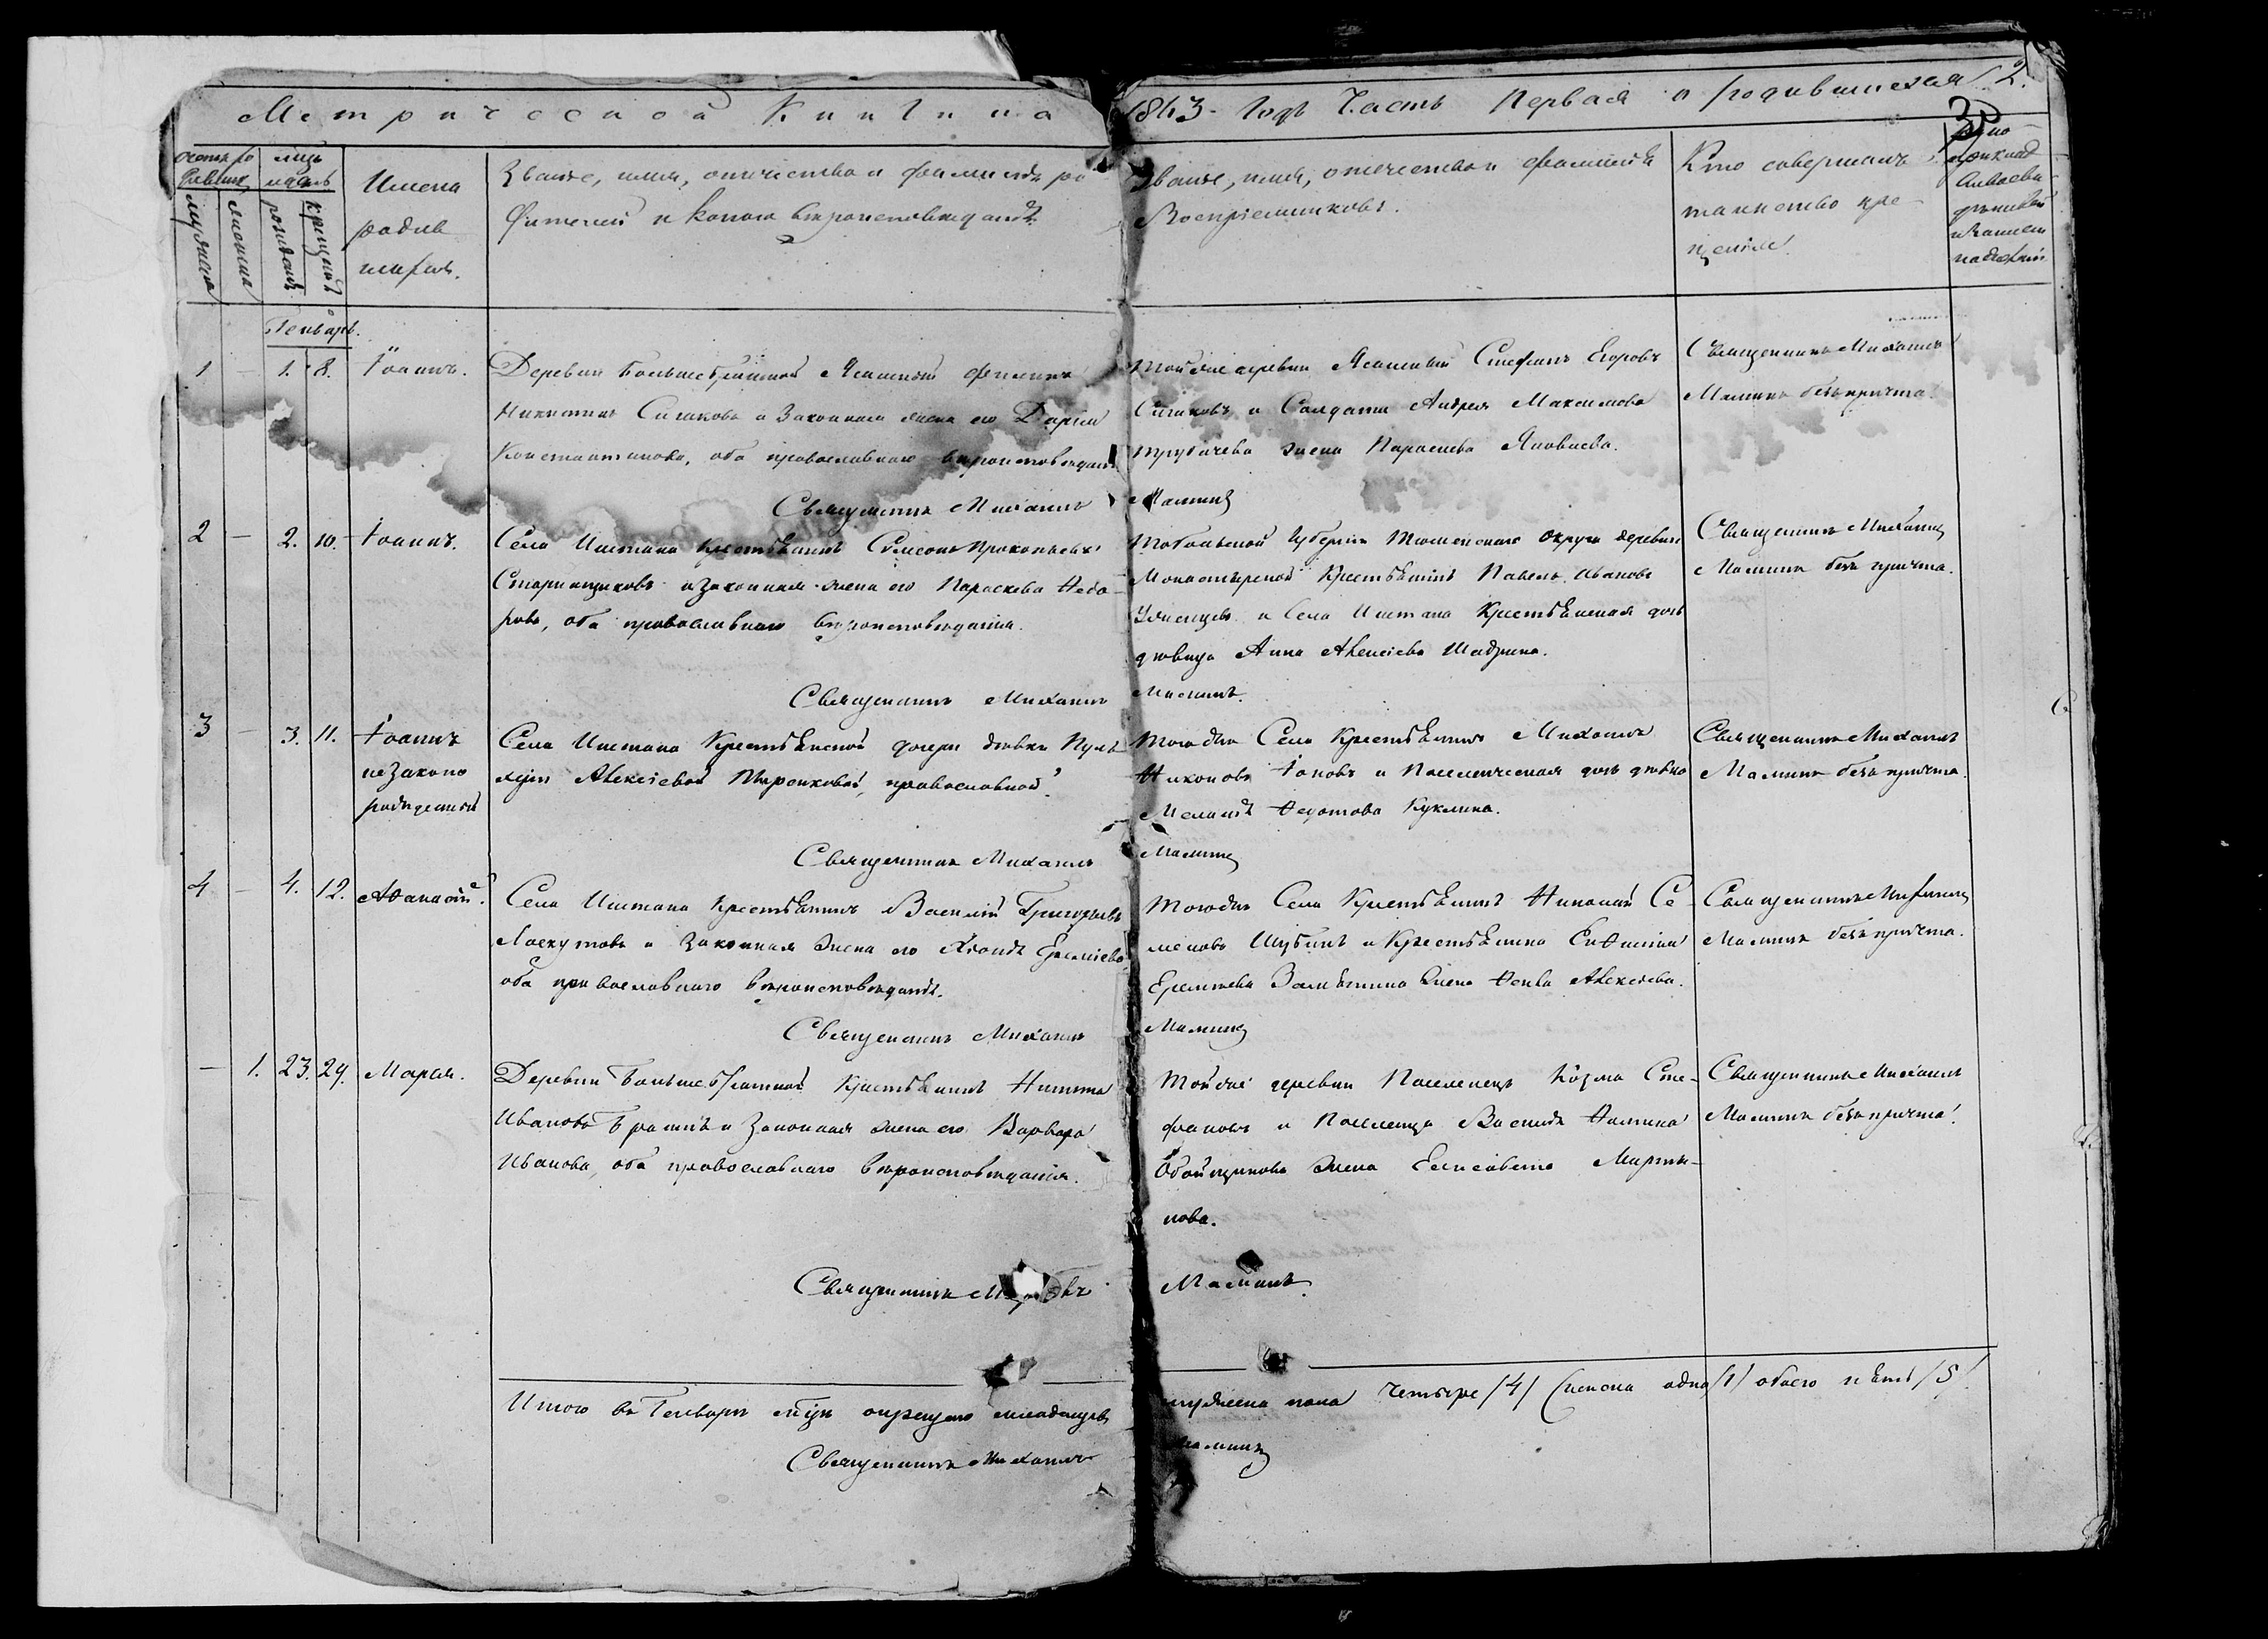 Метрической Книги на
1843 - Годъ Часть Первая о родившихся
2.
Счетъ ро
дившихся
мужеска
женска
мѣсяцъ
и день
рожденія
крещенія
Имена
родив
шихся.
Званіе, имя, отчество и фамилія ро
дителей и какого вѣроисповѣданія.
Званіе, имя, отчество и фамилія
Воспріемниковъ.
Кто совершалъ
таинство кре-
щенія.
Генварь.
1 - 1. 8. Іоаннъ.
Деревни Большебрагиной Ясашный Филиппъ
Никитинъ Сигаковъ и Законная жена его Дарія
Константинова, оба православнаго вѣроисповѣданія
Священникъ Михаилъ
Тойже деревни Ясашный Стефанъ Егоровъ
Сигаковъ и Солдата Андрея Максимова
Трубачева жена Параскева Яковлева.
Маминъ
Священникъ Михаилъ
Маминъ безъ причта.
2 - 2. 10. Іоаннъ.
Села Иштана Крестьянинъ Симеонъ Прокопьевъ
Старинщиковъ и Законная жена его Параскева Федо-
рова, оба православнаго вѣроисповѣданія.
Священникъ Михаилъ
Тобольской Губерніи Тюменскаго Округа деревни
Монастырской Крестьянинъ Павелъ Ивановъ
и Села Иштана Крестьянская дочь
дѣвица Анна Алексіева Шадрина.
Маминъ.
Священникъ Михаилъ
Маминъ безъ причта.
3 - 3. 11. Іоаннъ
незаконо
рожденный
Села Иштана Крестьянской дочери дѣвки Пуль
херіи Алексіевой Широковой, православной.
Священникъ Михаилъ
Тогоже Села Крестьянинъ Михаилъ
Никоновъ Іоновъ и Поселенческая дочь дѣвка
Меланія Федотова Куклина.
Маминъ
Священникъ Михаилъ
Маминъ безъ причта.
4 - 4. 12. Аѳанасій.
Села Иштана Крестьянинъ Василій Григорьевъ
Лоскутовъ и Законная жена его Хіонія Еремѣева
оба православнаго вѣроисповѣданія.
Священникъ Михаилъ
Тогоже Села Крестьянинъ Николай Се-
меновъ Шубинъ и Крестьянина Евфимія
Еремѣева Замятина жена Фекла Алексіева.
Маминъ
Священникъ Михаилъ
Маминъ безъ причта.
- 1. 23. 29. Марія.
Деревни Большебрагиной Крестьянинъ Никита
Ивановъ Брагинъ и Законная жена его Варвара
Иванова, оба православнаго вѣроисповѣданія.
Священникъ
Тойже деревни Поселенецъ Козма Сте-
фановъ и Поселенца Василія Фомина
Обойщикова жена Елисавета Марты-
нова.
Маминъ.
Священникъ Михаилъ
Маминъ безъ причта.
Итого въ Генварѣ мѣсяцѣ окрещено младенцевъ
Священникъ Михаилъ
мужеска пола Четыре /4/ Женска одна /1/ обоего пять /5/.
Маминъ